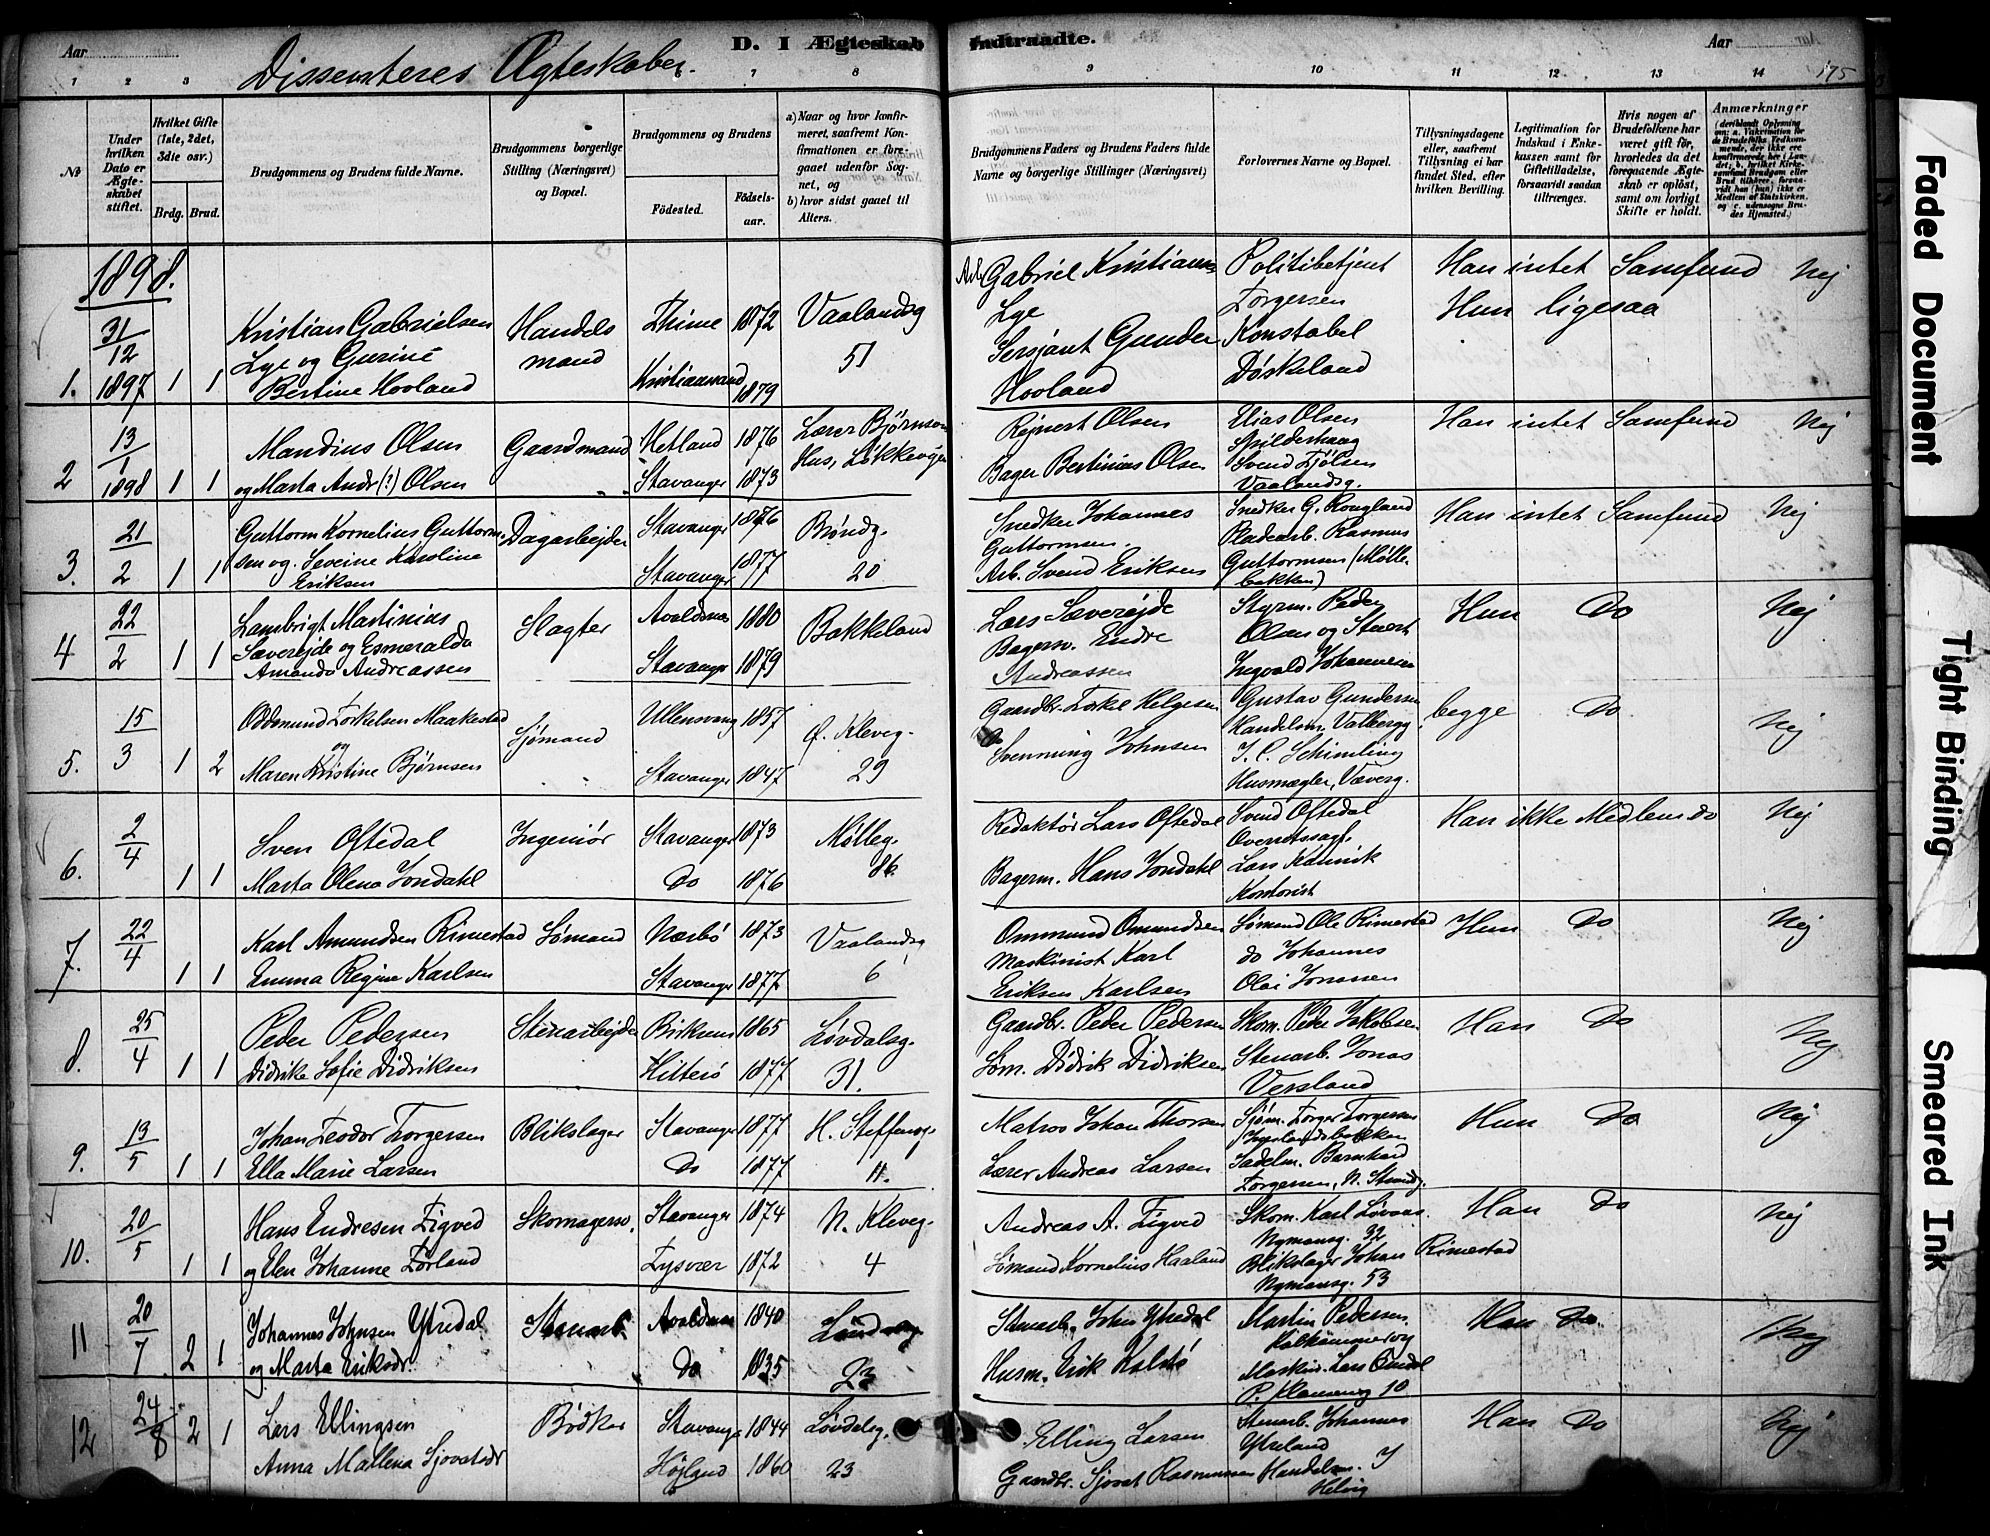 Aar
Dissenteres Ægteskaber.
D. I Ægteskab Indtraadte.
Aar
175
1 2 3 7 8 9 10 11 12 13 14
No
Under hvilken Dato er Ægteskabet stiftet.
Hvilket Gifte (1ste, 2det, 3die osv.)
Brdg. Brud.
Brudgommens og Brudens fulde Navne.
Brudgommens borgerlige Stilling (Næringsvei) og Bopæl.
Brudgommens og Brudens
Fødested.
Fødselsaar.
a) Naar og hvor konfirmeret, saafremt Konfirmationen er foregaaet udenfor Sognet, og
b) hvor sidst gaaet til Alters.
Brudgommens Faders og Brudens Faders fulde Navne og borgerlige Stillinger (Næringsvei)
Forlovernes Navne og Bopæl.
Tillysningsdagene eller, saafremt Tillysning ei har fundet Sted, efter hvilken Bevilling.
Legitimation for Indskud i Enkekassen samt for Giftetilladelse, forsaavidt saadan tiltrænges.
Hvis nogen af Brudefolkene har været gift før, hvorledes da det foregaaende Ægteskab er opløst, samt om lovligt Skifte er holdt.
Anmærkninger
1898.
1. 31/12 1897 1 1
Kristian Gabrielsen
Lye og Gurine
Bertine Hovland
Handels
mand
Thime 1872
Kristianssand 1879
Vaalandsg
51
Arb. Gabriel Kristians
Lye
Sersjant Gunder
Hovland
Politibetjent
Torgersen
Konstabel
Døskeland
Han intet Samfund
Hun ligesaa
Nej
2 13/1 1898 1 1
Mandius Olsen
og Marta Andr(!) Olsen
Gaardmand
Hetland 1876
Stavanger 1873
Lærer Bjørnson
Hus, Løkkevigen
Rejnert Olsen
Bager Bertinius Olsen
Elias Olsen
Spilderhaug
Svend Tjølsen
Vaalandsg.
Han intet Samfund
Nej
3. 21/2 1 1
Guttorm Kornelius Guttorm
sen og Severine Karoline
Eriksen
Dagarbejder
Stavanger 1876
Stavanger 1877
Brøndg.
20
Snedker Johannes
Guttormsen.
Arb. Svend Eriksen
Snedker G. Rougland
Pladearb. Rasmus
Guttormsen (Mølle-
bakken)
Han intet Samfund
Nej
4 22/2 1 1
Lambrigt Martinius
Sævereide og Esmeralda
Amanda Andreassen
Slagter
Avaldsnes 1880
Stavanger 1879
Bakkeland
Lars Sævereide
Bagersv. Endre
Andreassen
Styrm. Peder
Olsen og Stuert
Ingvald Johannesen
Hun Do
Nej
5. 15/3 1 2
Oddmund Torkelsen Maakestad
og
Maren Kristine Bjørnsen
Sjømand
Ullensvang 1857
Stavanger 1847
Ø. Kleveg.
29
Gaardbr. Torkel Helgesen
Svenning Johnsen
Gustav Gundersen
Handelsm. Valbergg.
J. C. Schimling
Husmægler, Væverg.
begge Do
Nej
6. 2/4 1 1
Sven Oftedal
Marta Olena Jondahl
Ingeniør
Stavanger 1873
Do 1876
Mølleg.
86
Redaktør Lars Oftedal
Bagerm. Hans Jondahl
Svend Oftedal
Lars Kannik
Kontorist
Han ikke Medlem do
Nej
7. 22/4 1 1
Karl Amundsen Rimestad
Emma Regine Karlsen
Sømand
Nærbø 1873
Stavanger 1877
Vaalandsg
6
Ommund Omundsen
Maskinist Karl
Eriksen Karlsen
Sømand Ole Rimestad
do Johannes
Olai Jonassen
Hun Do
Nej
8. 25/4 1 1
Peder Pedersen
Didrike Sofie Didriksen
Stenarbejder
Birkrem 1865
Hitterø 1877
Løvdalsg.
31.
Gaardbr. Peder Pedersen
Søm. Didrik Didriksen
Skom. Peder Jakobsen
Stenarb. Jonas
Versland
Han Do
Nej
9. 13/5 1 1
Johan Teodor Torgersen
Ella Marie Larsen
Blikslager
Stavanger 1877
Do 1877
H. Steffensg.
11.
Matros Johan Thorsen
Lærer Andreas Larsen
Sjøm. Torger Torgersen
Sadelm. Barnhard
Torgersen, N. Strandg.
Hun Do
Nej
10. 20/5 1 1
Hans Endresen Tigved
og Elen Johanne Førland
Skomagersv.
Stavanger 1874
Tysvær 1872
N. Kleveg.
4
Andreas A. Tigved
Sømand Kornelius Haaland
Skom. Karl Løvaas.
Nymansg. 32
Blikslager Johan Rimestad
Nymansg. 53
Han Do
Nej
11 20/7 2 1
Johannes Johnsen Ytredal
og Marta Eriksdr.
Stenarb.
Avaldsnes 1840
Do 1835
23
Stenarb. John Ytredal
Husm. Erik Kalstø
Martin Pedersen
Maskin. Lars Omdal
10
Han Do
Nej
12 24/8 2 1
Lars Ellingsen
Anna Mallena Sjovatsdr
Bødker
Stavanger 1844
Højland 1860
Løvdalsg.
23
Elling Larsen
Gaardbr. Sjovat Rasmussen
Stenarb. Johannes
Ytreland
Handelsm. J
Helvig
Han Do
Nej
Faded Document
Tight Binding
Smeared Ink